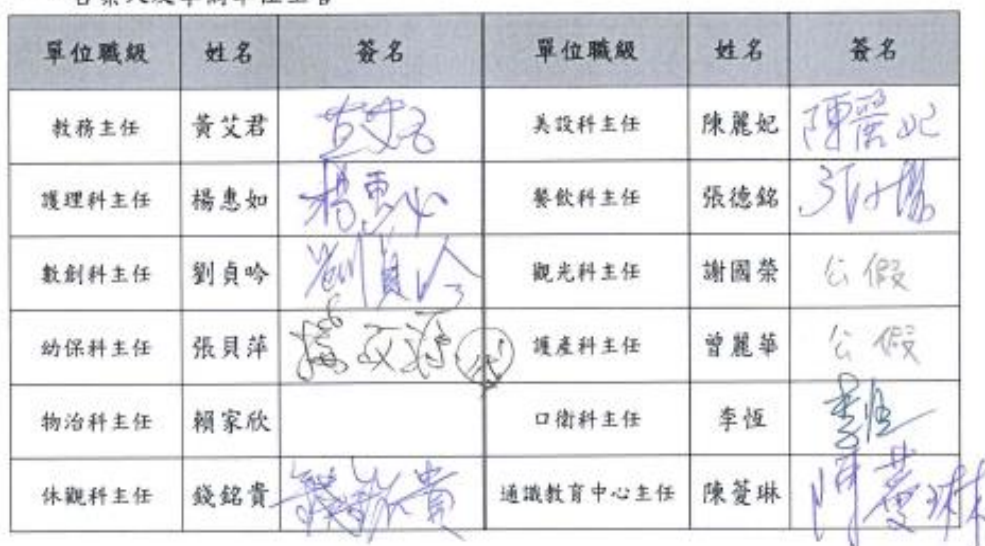 單位職級 姓名 簽名 單位職級 姓名 簽名
教務主任 黃艾君 美設科主任 陳麗妃 陳麗妃
護理科主任 楊惠如 楊惠如 餐飲科主任 張德銘
數創科主任 劉貞吟 劉貞吟 觀光科主任 謝國榮 公假
幼保科主任 張貝萍 護產科主任 曾麗華 公假
物治科主任 賴家欣 口衛科主任 李恆 李恆
休觀科主任 錢銘貴 錢銘貴 通識教育中心主任 陳薆琳 陳薆琳